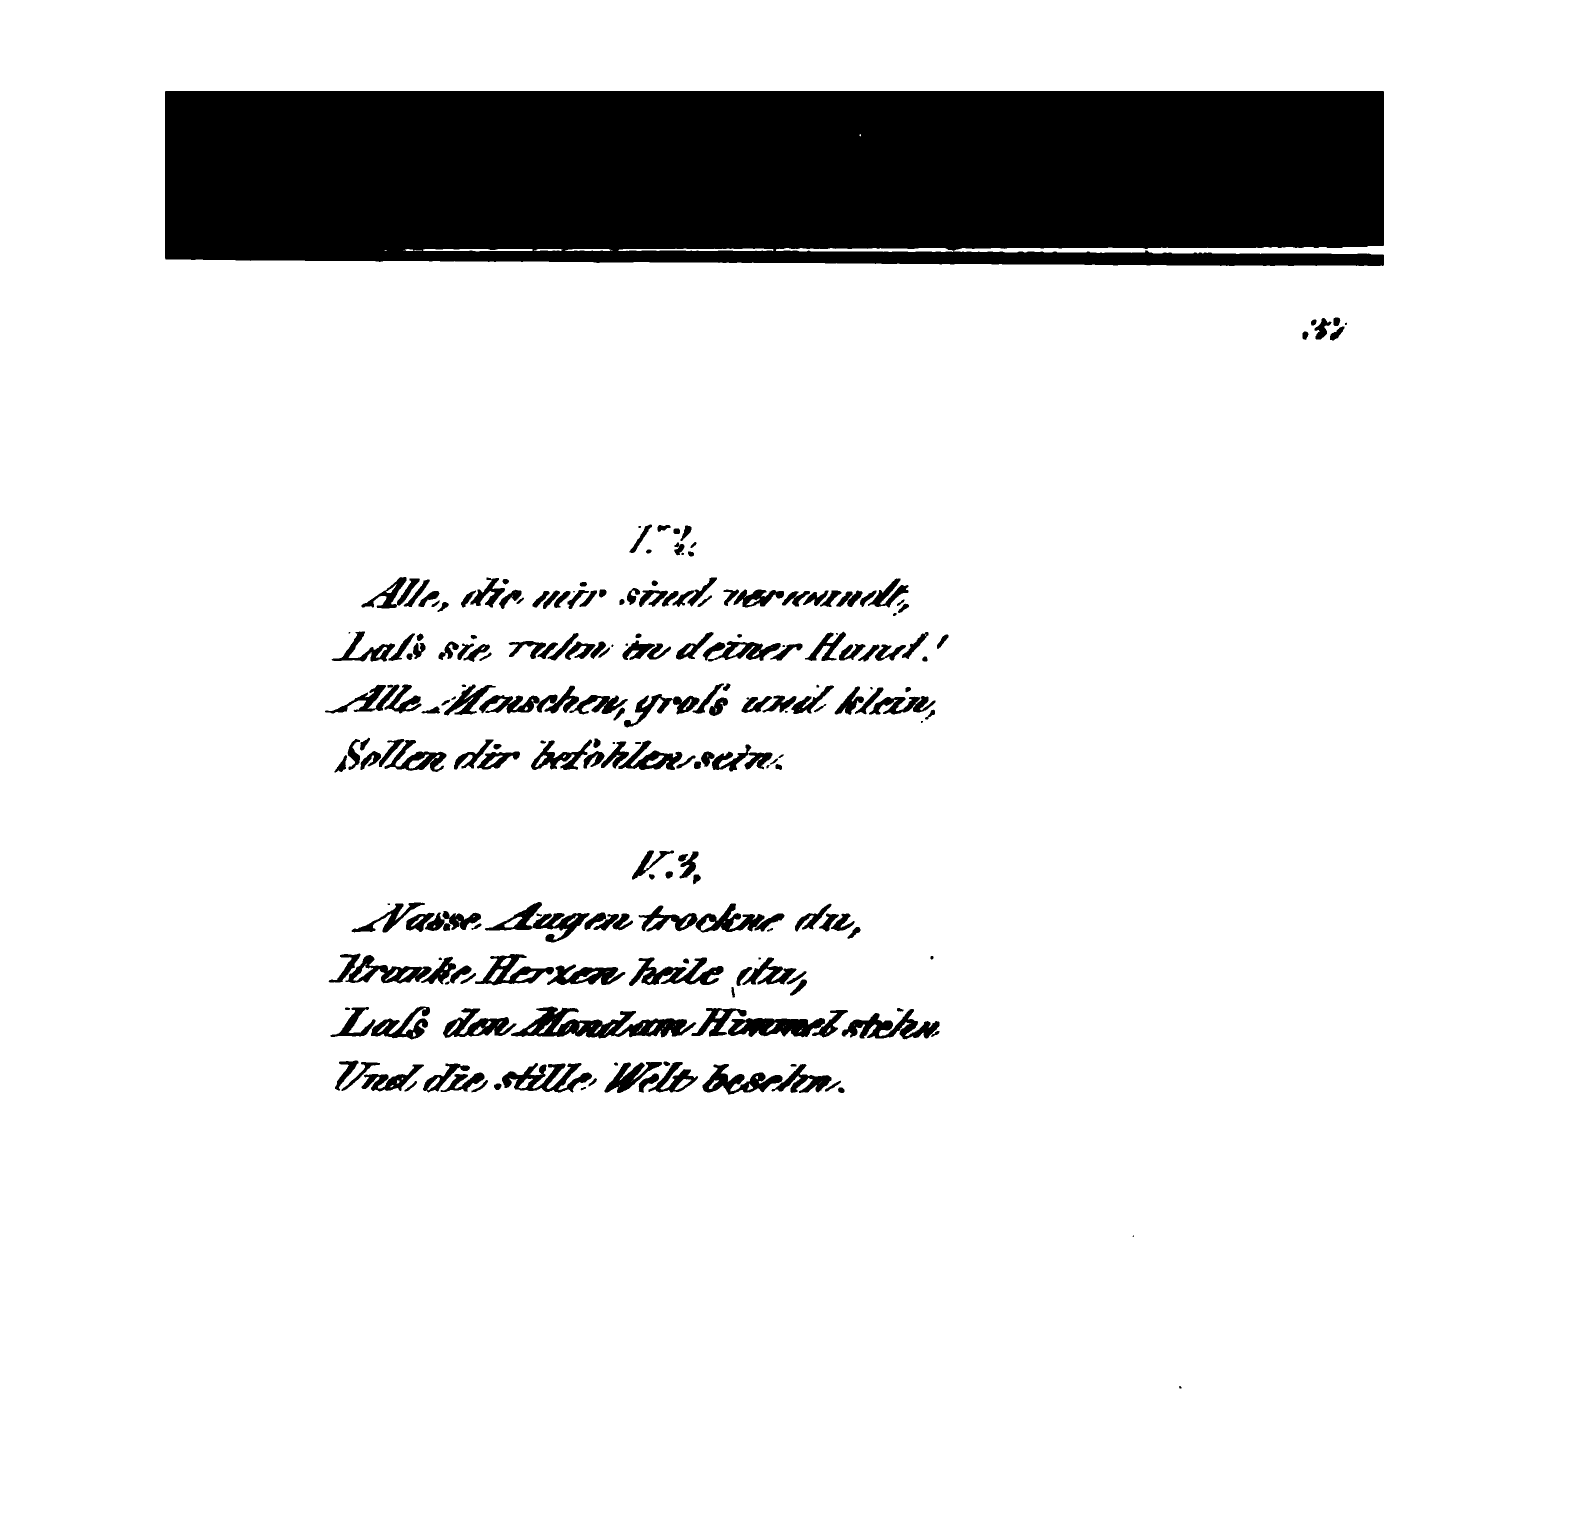 V. 2.
Alle, die mir sind verwandt,
Laſs sie ruhn in deiner Hand!
Alle Menschen, groſs und klein,
Sollen dir befohlen sein.
V. 3.
Nasse Augen trockne du,
Kranke Herzen heile du,
Laſs den Mond am Himmel stehn
Und die stille Welt besehn.